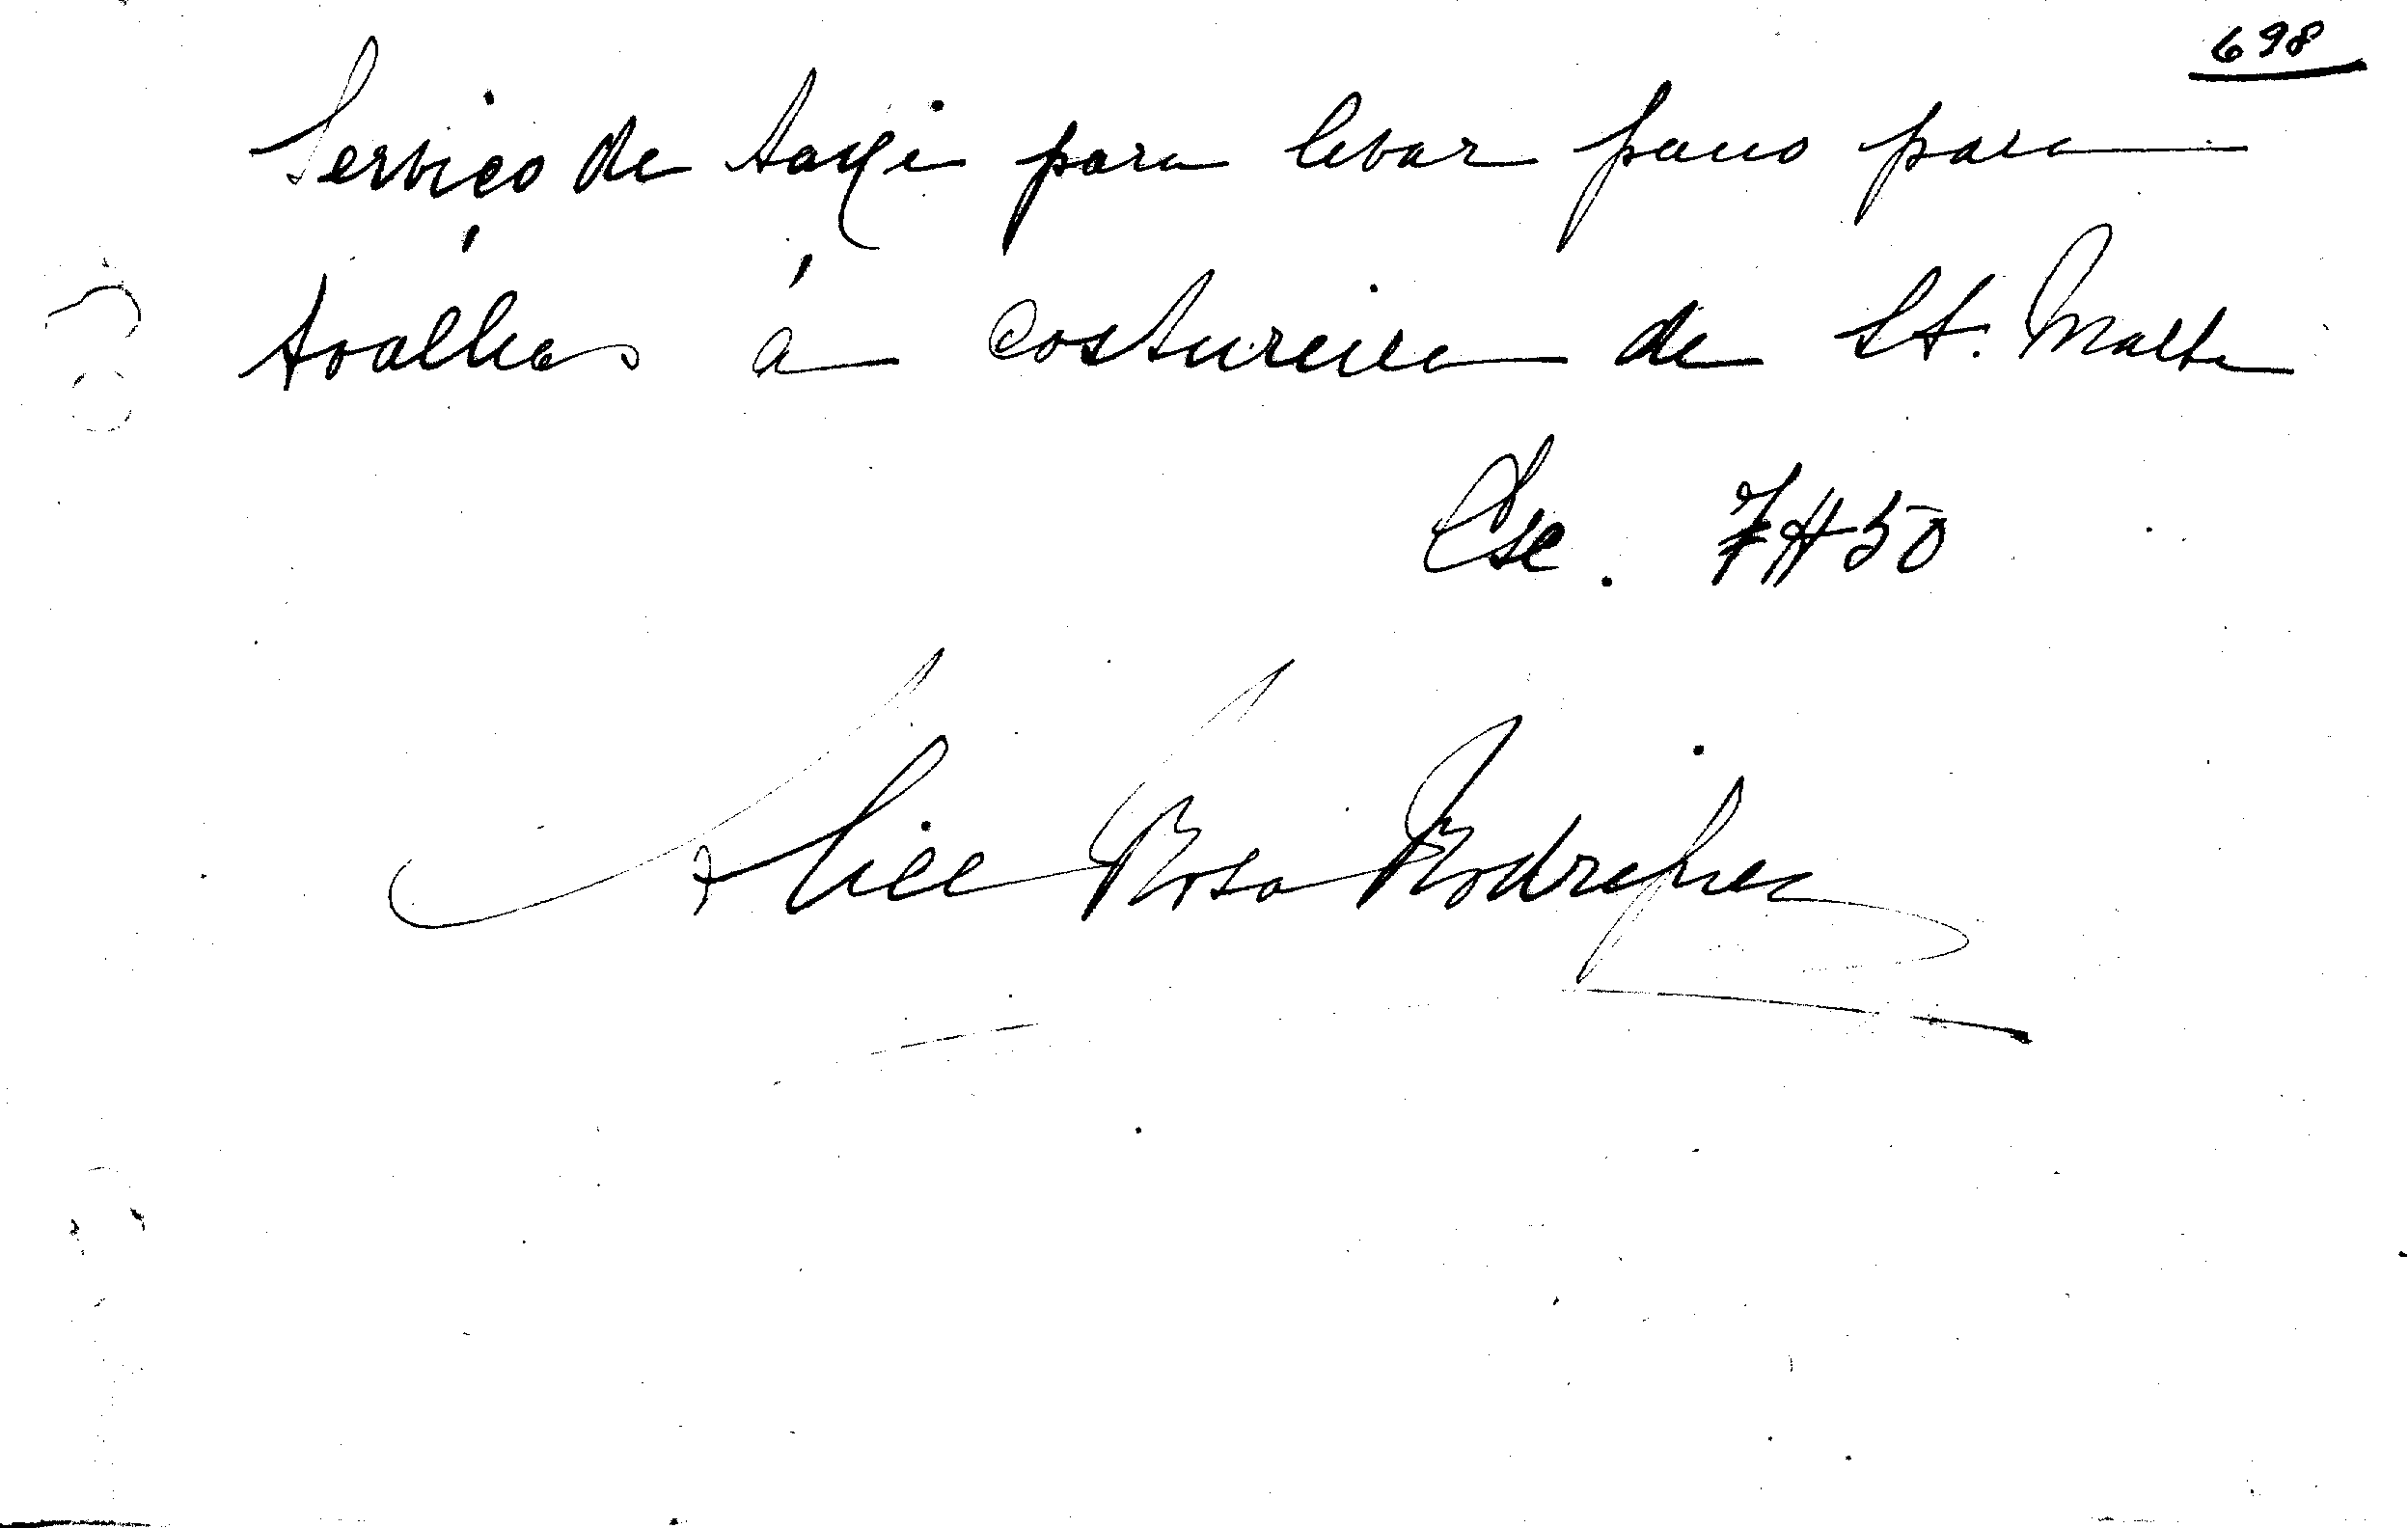 698
Serviço de taxi para levar pano para
toalhas á costureira de St. Marta
Esc. 7$50
Alice Rosa Rodrigues